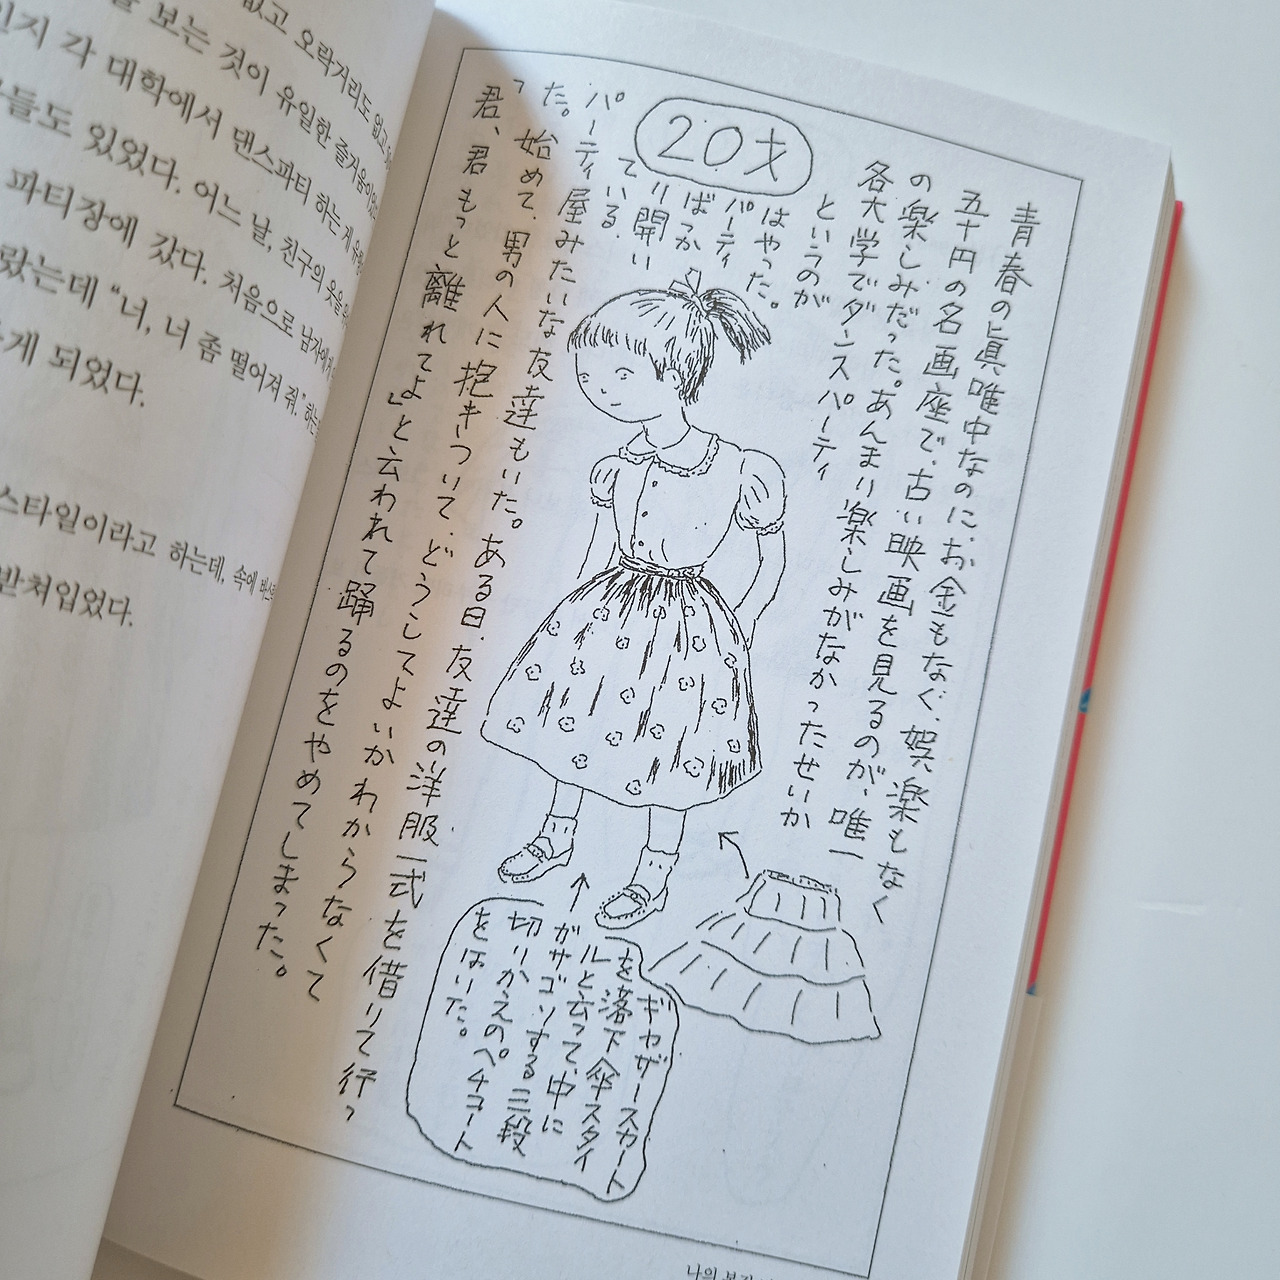 없고 오락거리도 없고
보는 것이 유일한 즐거움이었
인지 각 대학에서 댄스파티 하는 게 유행
들도 있었다. 어느 날, 친구의 옷을
파티장에 갔다. 처음으로 남자에게
랐는데 “너, 너 좀 떨어져 줘.” 하는
게 되었다.
스타일이라고 하는데, 속에
받쳐입었다.
20才
青春の眞唯中なのに、お金もなく、娯楽もなく
五十円の名画座で、古い映画を見るのが、唯一
の楽しみだった。あんまり楽しみがなかったせいか
各大学でダンスパーティ
というのが
はやった。
パーティ
ばっか
り開い
ている、
パーティ屋みたいな友達もいた。ある日、友達の洋服一式を借りて行っ
た。始めて、男の人に抱きついて、どうしてよいかわからなくて
「君、君もっと離れてよ」と云われて踊るのをやめてしまった。
ギャザースカート
を落下傘スタイ
ルと云って、中に
がサゴソする三段
切りかえのペチコート
をはいた。
나의